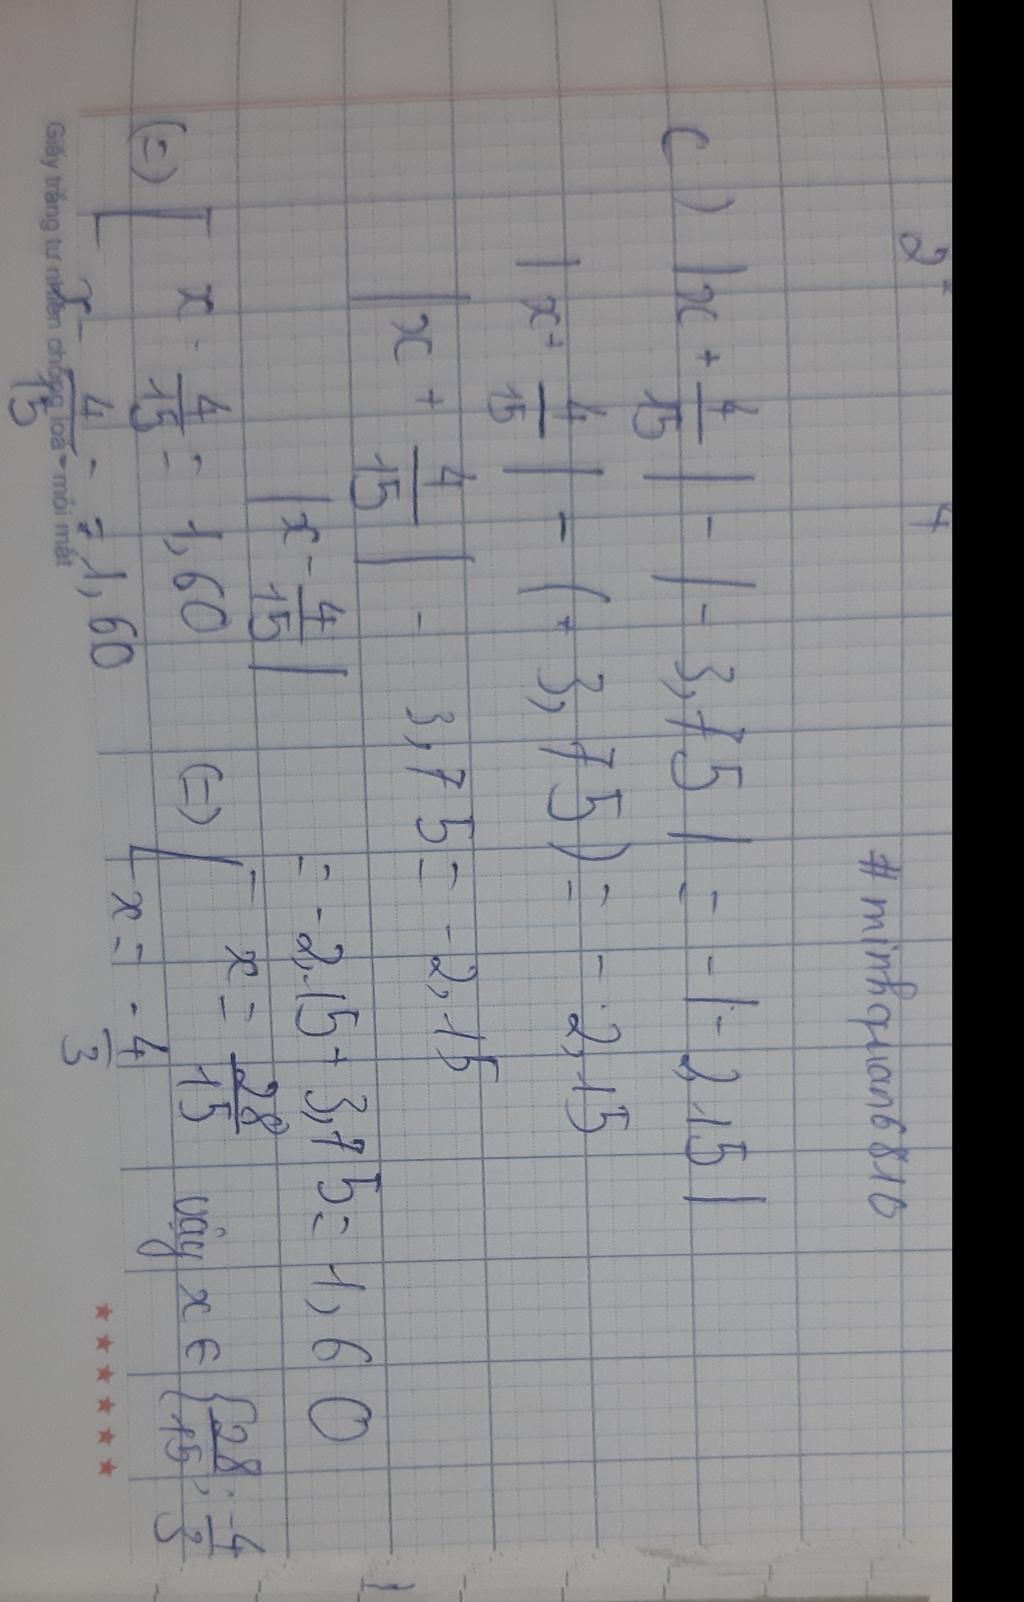 2 4
#minhquan6816
c) |x + 4/15| - |- 3,75| = - |- 2,15|
|x + 4/15| - (+ 3,75) = - 2,15
|x + 4/15| - 3,75 = -2,15
|x - 4/15| = -2,15 + 3,75 = 1,60
(=) [ x - 4/15 = 1,60 (=) [ x = 28/15 vậy x ∈ {28/15; -4/3
x - 4/15 = -1,60 x = - 4/3
Giấy trắng tự nhiên chống loá - mỏi mắt